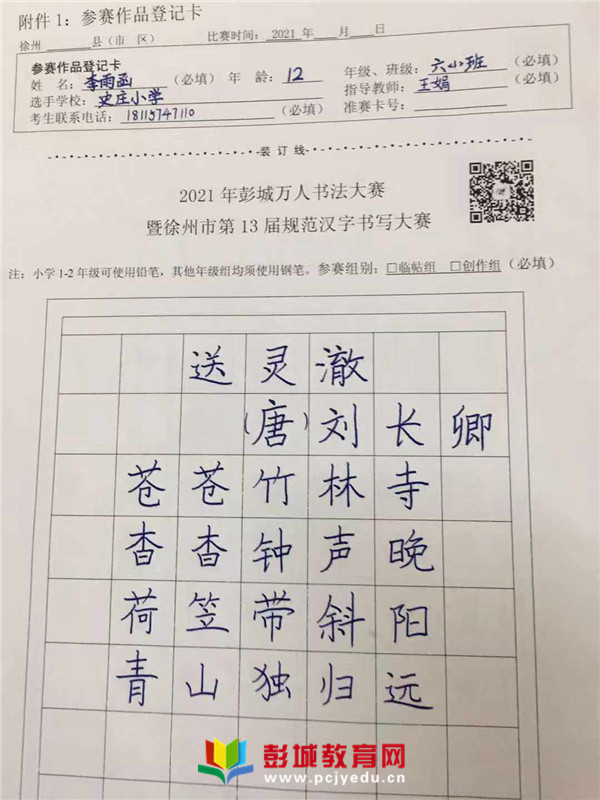 附件1：参赛作品登记卡
徐州________县（市 区） 比赛时间：2021年____月____日
参赛作品登记卡
姓 名：李雨函（必填）年 龄：12 年级、班级：六小班（必填）
选手学校：史庄小学 指导教师：王娟（必填）
考生联系电话：18115747110（必填） 准赛卡号：
装 订 线
2021年彭城万人书法大赛
暨徐州市第13届规范汉字书写大赛
注：小学1-2年级可使用铅笔，其他年级组均须使用钢笔。参赛组别：□临帖组 □创作组（必填）
送灵澈
（唐）刘长卿
苍苍竹林寺
杳杳钟声晚
荷笠带斜阳
青山独归远
彭城教育网
www.pcjyedu.cn